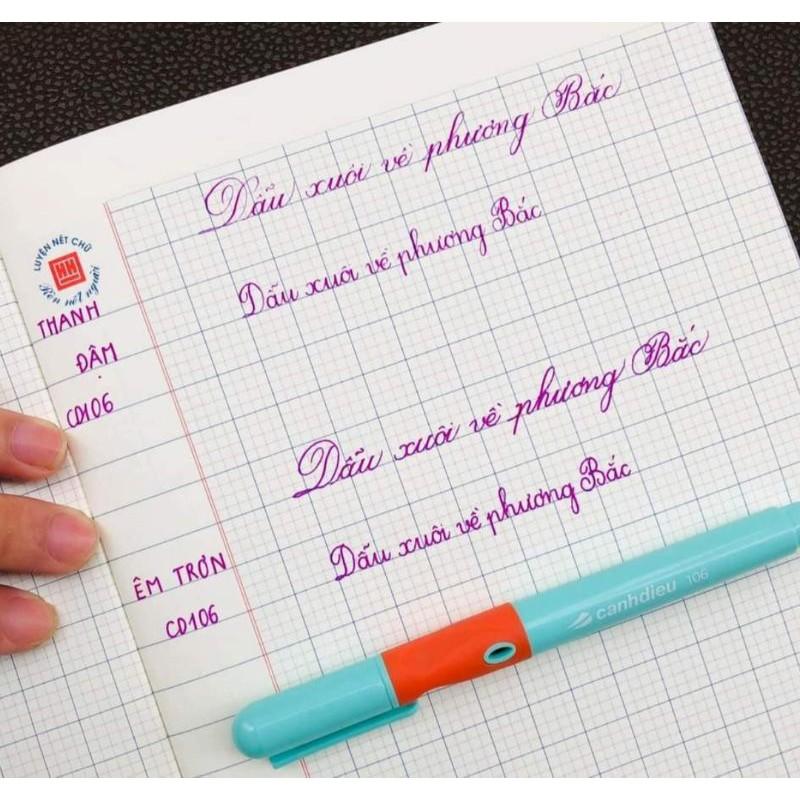 Dẩu xuôi về phương Bắc
LUYỆN NÉT CHỮ
HH
Rèn nết người
Dẩu xuôi về phương Bắc
THANH
ĐẬM
CD106
Dẩu xuôi về phương Bắc
Dẩu xuôi về phương Bắc
ÊM TRƠN
CD106
canhdieu 106